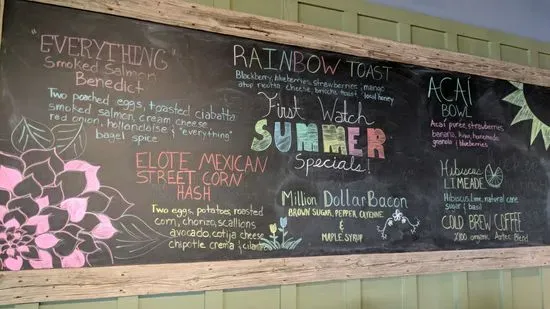 "EVERYTHING"
Smoked Salmon
Benedict
Two poached eggs, toasted ciabatta
smoked salmon, cream cheese
red onion, hollandaise & "everything"
bagel spice
ELOTE MEXICAN
STREET CORN
HASH
Two eggs, potatoes, roasted
corn, chorizo, scallions
avocado, cotija cheese
chipotle crema & cilantro
RAINBOW TOAST
Blackberry, blueberries, strawberries & mango
atop ricotta cheese, brioche toast & local honey
First Watch
SUMMER
Specials!
Million Dollar Bacon
BROWN SUGAR, PEPPER, CAYENNE
&
MAPLE SYRUP
AÇAÍ
BOWL
Acai puree, strawberries,
banana, kiwi, homemade
granola & blueberries
Hibiscus
LIMEADE
Hibiscus, lime, natural cane
sugar & basil
COLD BREW COFFEE
100% organic Aztec Blend